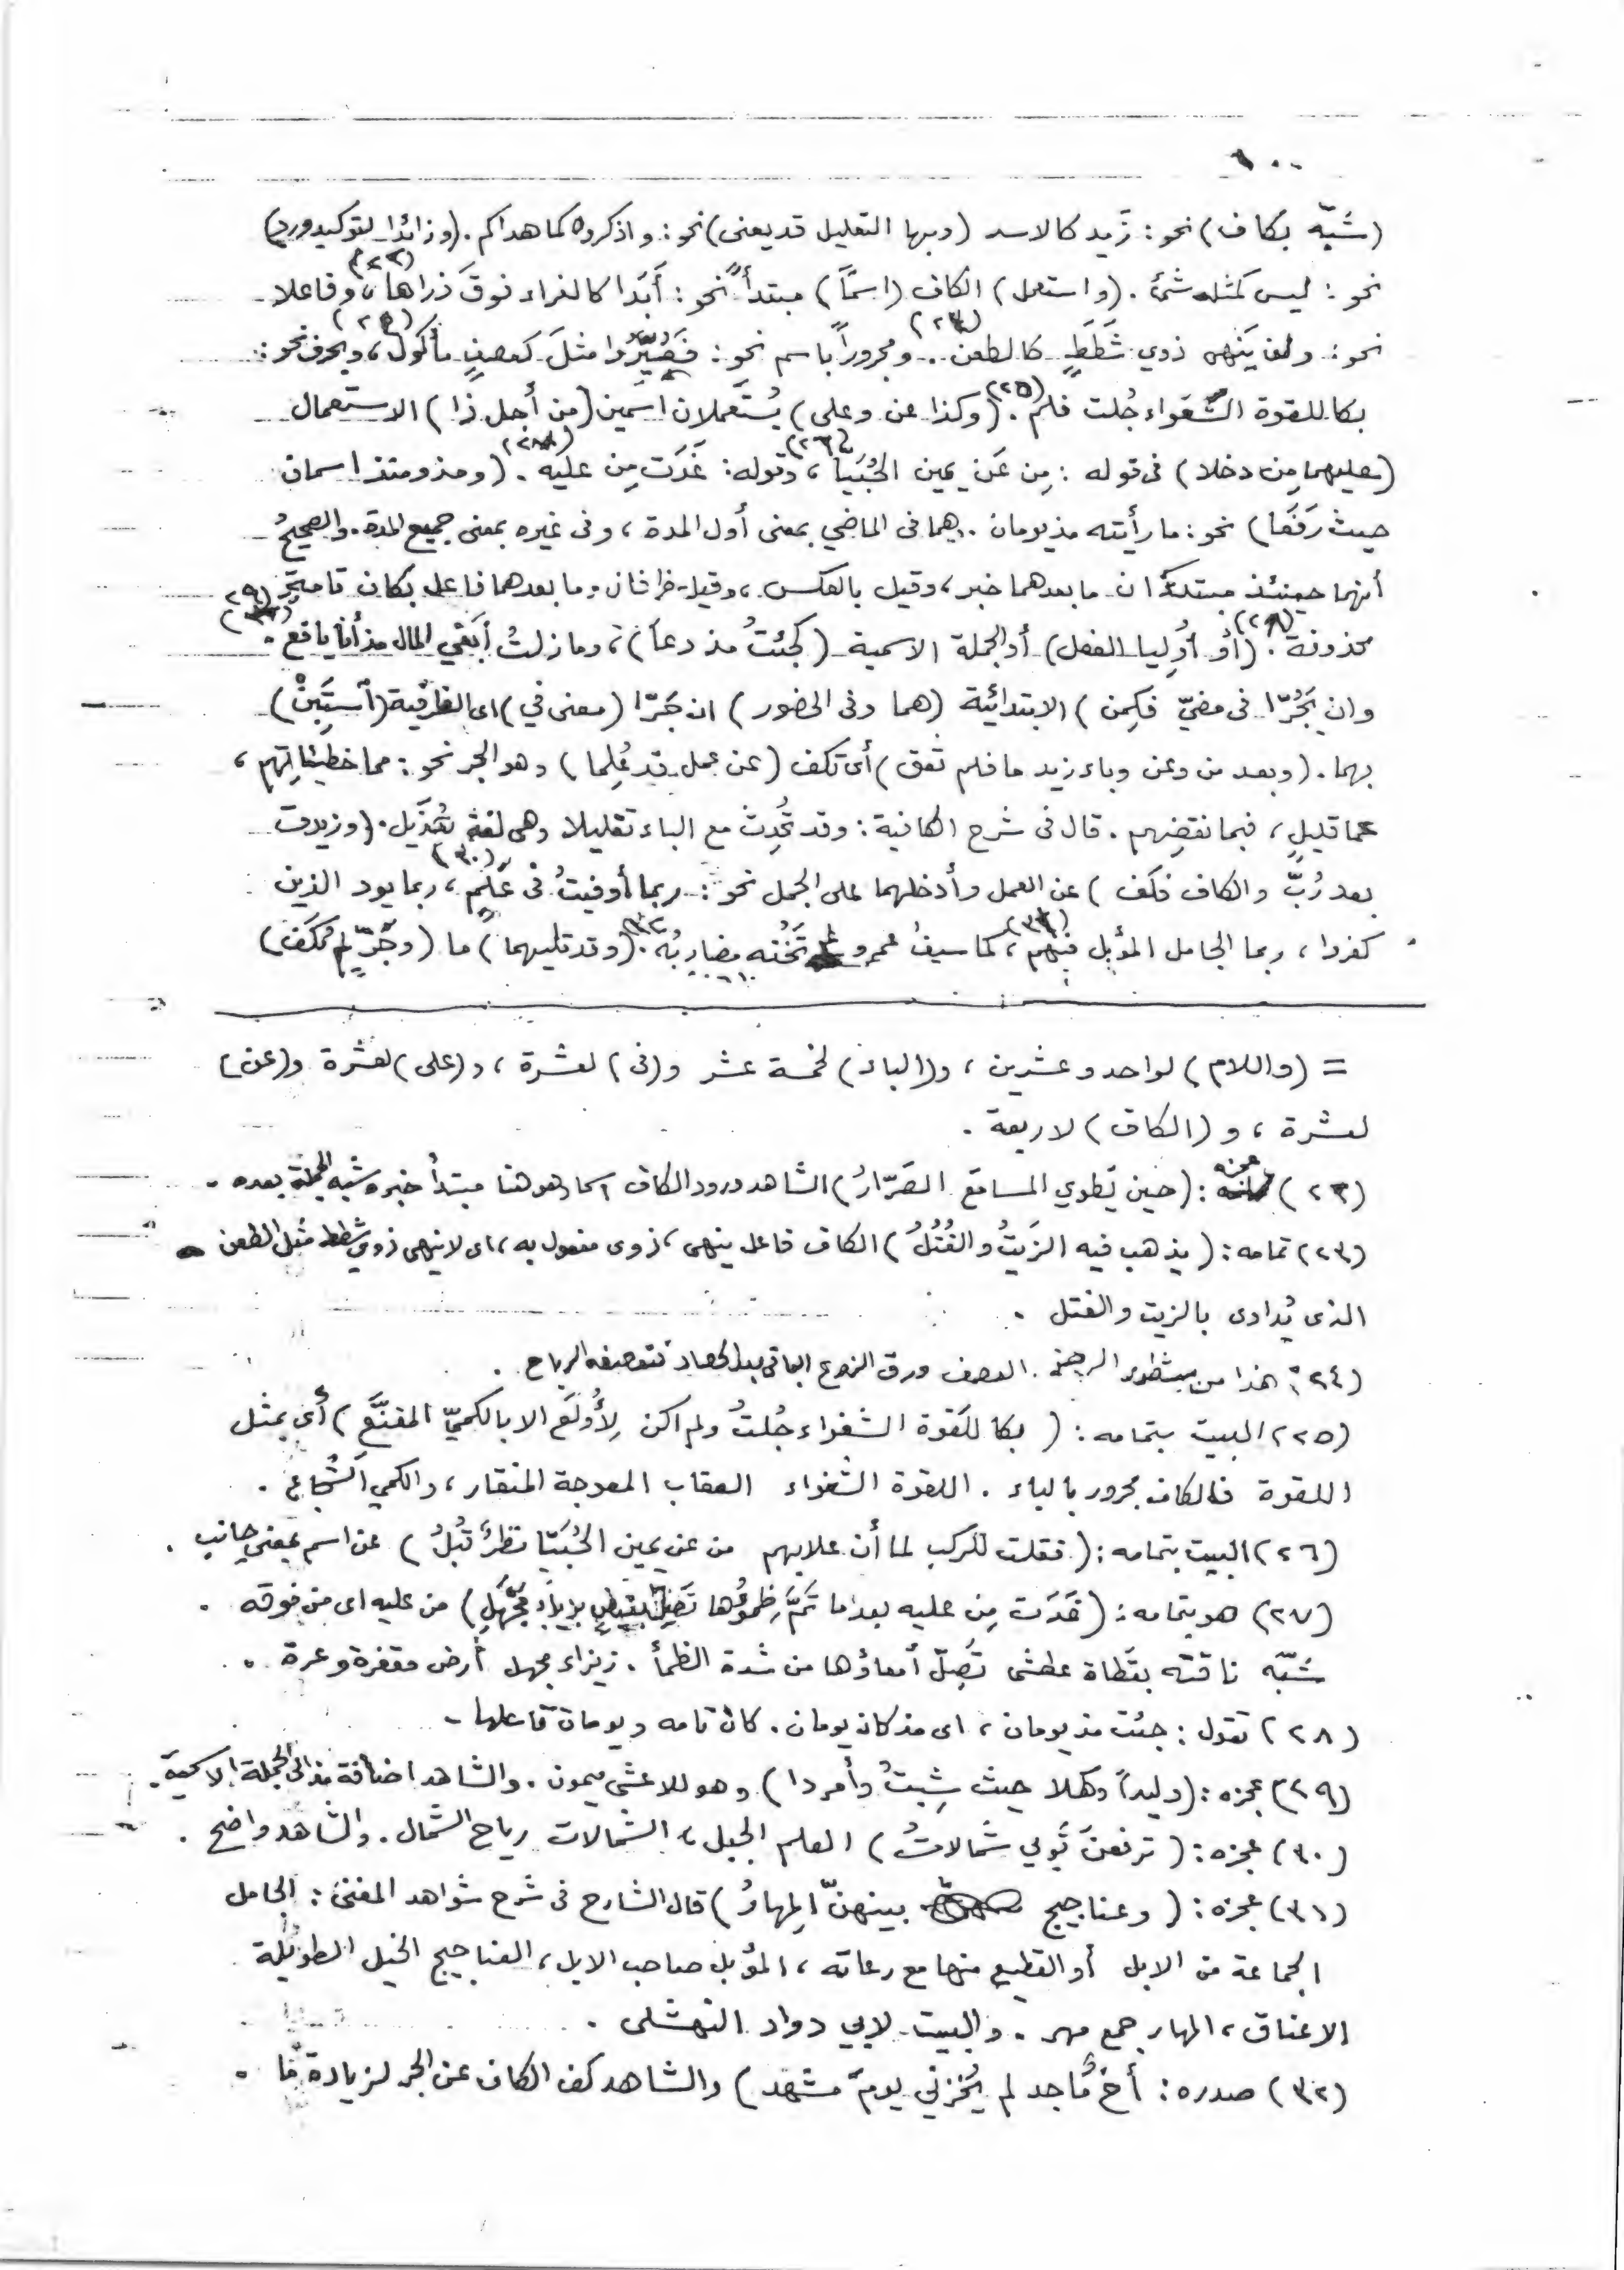 ١٠٠
(شَبّه بكاف) نحو: زَيد كالاسد (وبها التعليل قد يعنى) نحو: واذكروه كما هداكم. (وزائدا لتوكيد ورد)
نحو: ليس كمثله شئ. (واستعمل) الكاف (اسمًا) مبتدأ نحو: أبَدا كالفراء فوقَ ذراها (٢٢)، وفاعلا
نحو: ولن يَنهى ذوي شَطَطٍ كالطعن (٢٣).. ومجروراً باسم نحو: فصُيِّرُوا مثلَ كعصفٍ مأكول (٢٤)، وبحرف نحو:
بكا للقوة الشَّغواء جُلت فلم (٢٥). (وكذا عن وعلى) يُستَعملان اسمين (من أجل ذا) الاستعمال
(عليهما مِن دخلا) فى قوله: مِن عَن يمين الحُبَيّا (٢٦)، وقوله: غَدَت مِن عليه. (ومذ ومنذ اسمان
حيث رَفَعَا) نحو: ما رأيته مذ يومان.. وهما فى الماضي بمعنى أول المدة، وفى غيره بمعنى جميع المدة. والصحيحُ
أنهما حينئذ مبتدآن ما بعدهما خبر، وقيل بالعكس، وقيل ظرفان وما بعدهما فاعل بكان تامةً
محذوفة (٢٨). (أو أُوليا الفعل) أو الجملة الاسمية (كجئتُ مذ دعا)، وما زلتُ أبغي المال مذ أنا يافع (٢٩).
وان يَجُرّا فى مضيّ فكمِن) الابتدائية (هما وفى الحضور) ان جَرّا (معنى في) اى الظرفية (اُستَبِنْ)
بهما. (وبعد من وعن وباء زيد ما فلم تعق) أى تكف (عن عمل قد عُلِما) وهو الجر نحو: مما خطيئاتِهم،
عما قليلٍ، فبما نقضِهم. قال فى شرح الكافية: وقد تُحدِث مع الباء تقليلا وهى لغة هُذَيل. (وزيدت
بعد رُبّ والكاف فكَف) عن العمل وأدخلهما على الجمل نحو: ربما أوفيتُ فى عَلَمٍ (٣٠)، ربما يود الذين
كفروا، ربما الجامل المؤبل فيهم (٣١)، كما سيفُ عمرو لم تَخُنه مضاربُه (٣٢). (وقد تليهما) ما (وجَرٌّ لم يُكَف)
= (واللام) لواحد وعشرين، و(الباء) لخمسة عشر و(فى) لعشرة، و(على) لعشرة و(عن)
لعشرة، و(الكاف) لاربعة.
(٢٢) عجزه: (حين يَطوي المسامَع الصَرّارُ) الشاهد ورود الكاف اسما وهو هنا مبتدأ خبره شبه الجملة بعده.
(٢٣) تمامه: (يذهب فيه الزَيتُ والفُتُلُ) الكاف فاعل ينهى، ذوى مفعول به، اى لا ينهى ذوي شطط مثل الطعن
الذى يُداوى بالزيت والفتل.
(٢٤): هذا من مشطور الرجز. العصف ورق الزرع الباقي بعد الحصاد فتعصفه الرياح.
(٢٥) البيت بتمامه: (بكا للَقوة الشغواء جُلتُ ولم اكن لِأُولَعَ الا بالكميّ المقنَّعِ) أى بمثل
اللقوة فالكاف مجرور بالباء. اللقوة الشغواء العقاب المعوجة المنقار، والكمي الشُجاع.
(٢٦) البيت بتمامه: (فقلت للركب لما أن علابهم من عن يمين الحُبَيّا نظرةٌ قَبلُ) عن اسم بمعنى جانب.
(٢٧) هو بتمامه: (غَدَت مِن عليه بعدما تمَّ ظِمؤُها تَصِلّ بزيزاء مَجهَلِ) من عليه اى من فوقه.
شَبّه ناقته بقَطاة عطشى تَصِلّ أمعاؤها من شدة الظمأ. زيزاء مجهل أرض مقفرة وعرة.
(٢٨) تقول: جئت مذ يومان، اى مذ كان يومان. كان تامه ويومان فاعلها
(٢٩) عجزه: (وليداً وكهلا حيث شِبتُ وأمردا) وهو للاعشى ميمون. والشاهد اضافة مذ الى الجملة الاسمية.
(٣٠) عجزه: (ترفعنَ ثَوبي شَمالاتُ) العلم الجبل، الشمالات رياح الشمال. والشاهد واضح.
(٣١) عجزه: (وعناجيج بينهنّ المِهارُ) قال الشارح فى شرح شواهد المغنى: الجامل
الجماعة من الابل أو القطيع منها مع رعاته، المؤبل صاحب الابل، العناجيج الخيل الطويلة
الاعناق، المهار جمع مهر. والبيت لابي دواد النهشلى.
(٣٢) صدره: أخٌ مُاجد لم يُخزني يومَ مشهد) والشاهد كف الكاف عن الجر لزيادة ما.